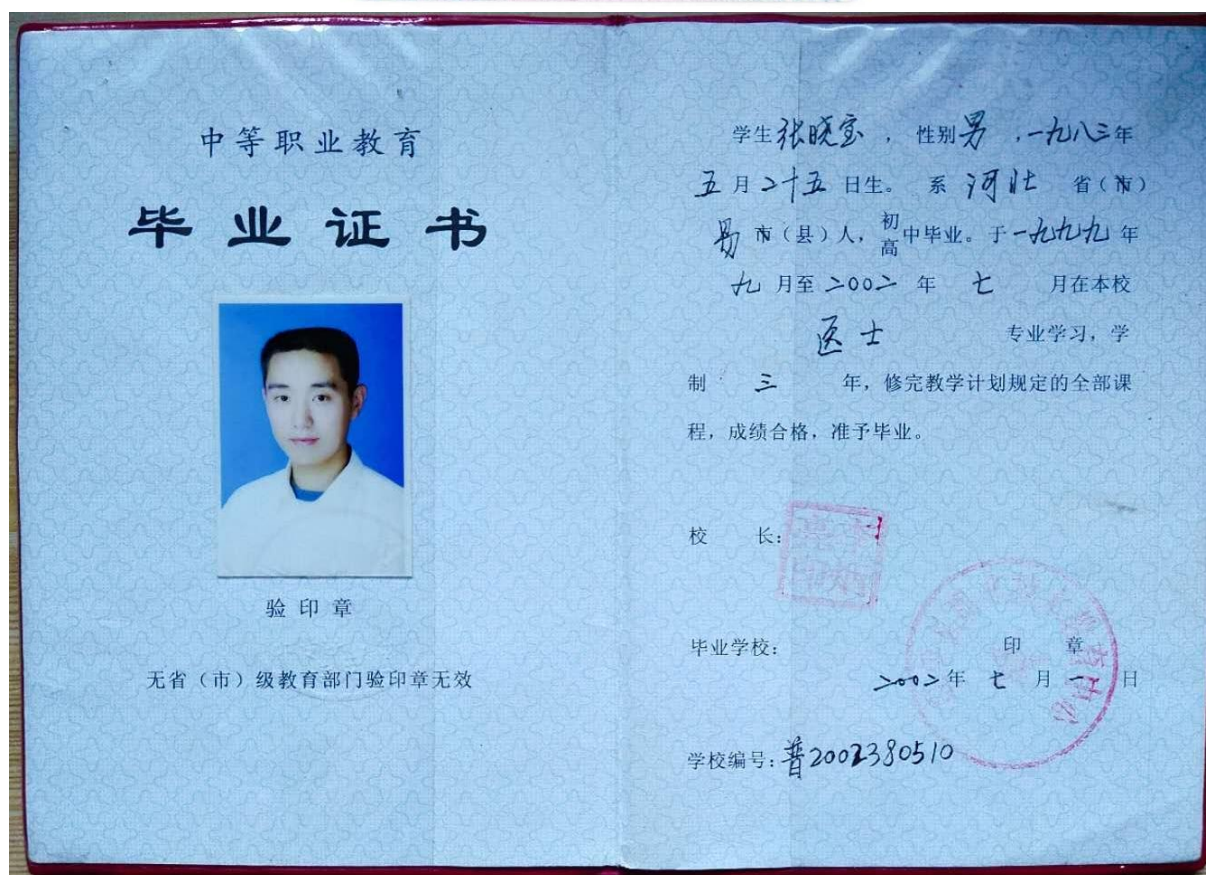 中等职业教育
毕业证书
验印章
无省（市）级教育部门验印章无效
学生张晓宝，性别男，一九八三年
五月二十五日生。系河北省（市）
易市（县）人，初高中毕业。于一九九九年
九月至二00二年七月在本校
医士专业学习，学
制三年，修完教学计划规定的全部课
程，成绩合格，准予毕业。
校长：
毕业学校：印章
二00二年七月一日
学校编号：普2002380510